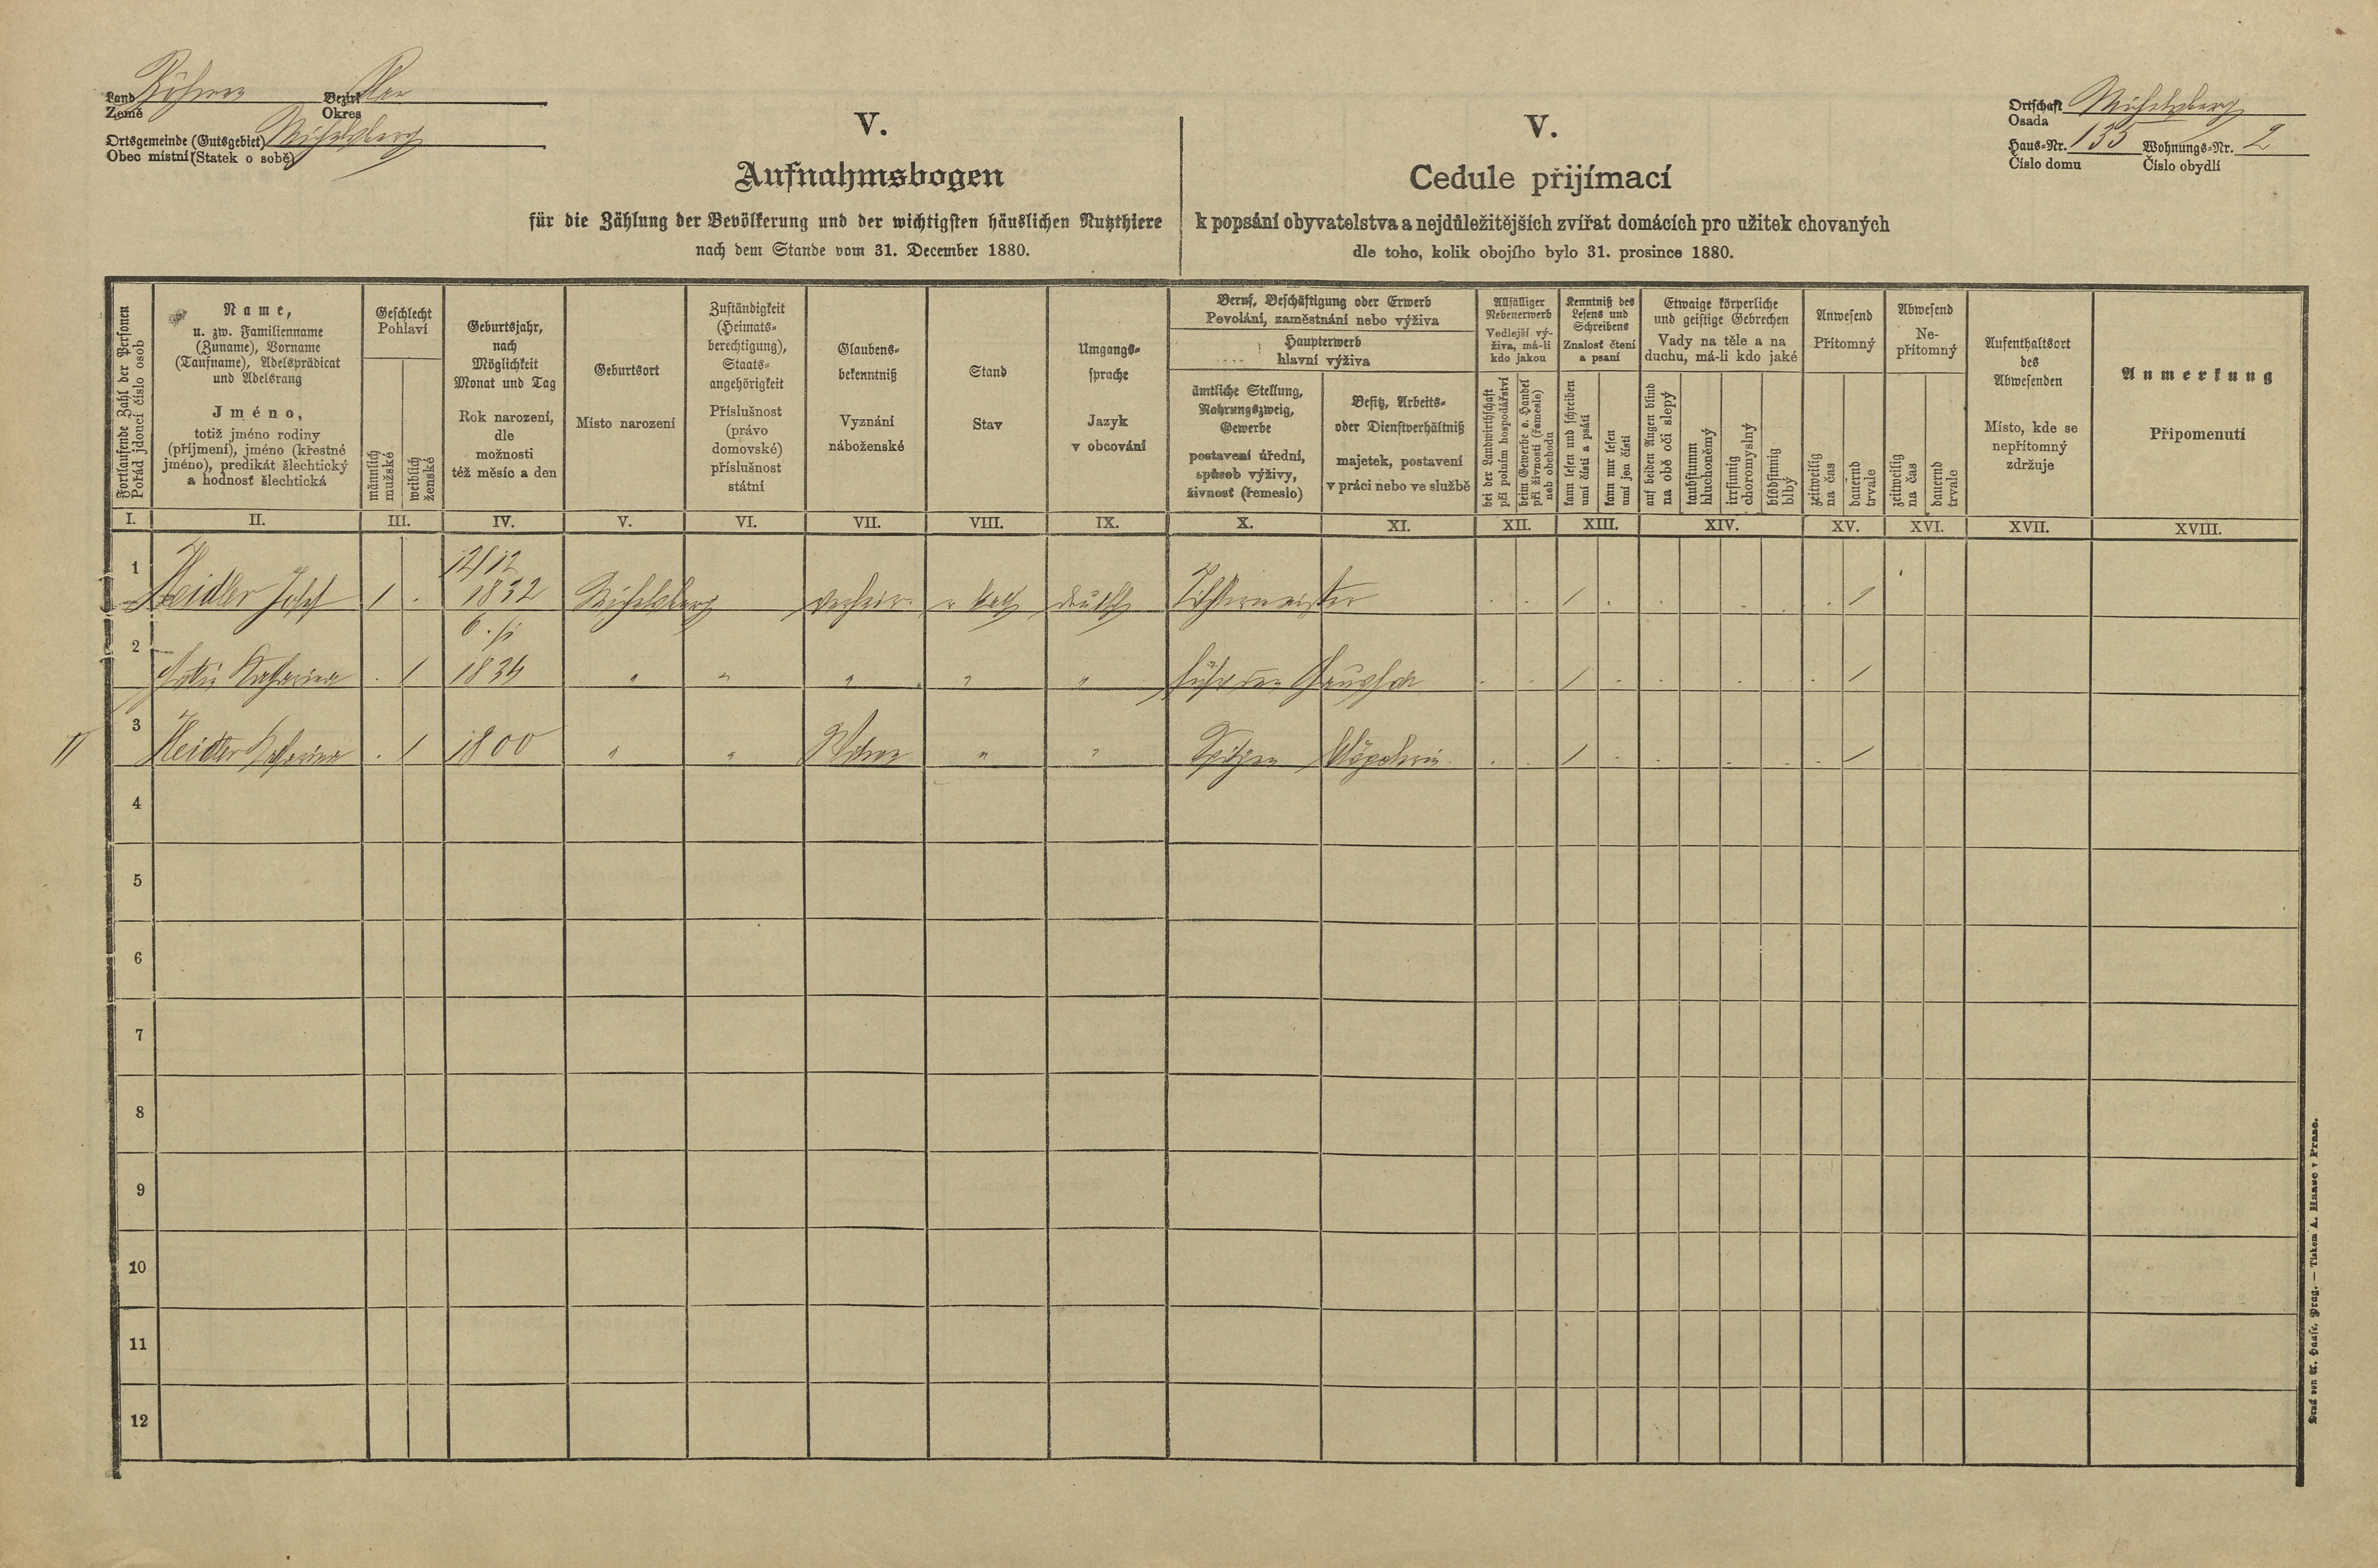 Land Böhmen Bezirk Plan
Země Okres
Ortsgemeinde (Gutsgebiet) Michelsberg
Obec místní (Statek o sobě)
Ortschaft Michelsberg
Osada
Haus-Nr. 135 Wohnungs-Nr. 2
Číslo domu Číslo obydlí
V.
Aufnahmsbogen
für die Zählung der Bevölkerung und der wichtigsten häuslichen Nutzthiere
nach dem Stande vom 31. December 1880.
V.
Cedule přijímací
k popsání obyvatelstva a nejdůležitějších zvířat domácích pro užitek chovaných
dle toho, kolik obojího bylo 31. prosince 1880.
Fortlaufende Zahl der Personen
Pořád jdoucí číslo osob
Name,
u. zw. Familienname
(Zuname), Vorname
(Taufname), Adelsprädicat
und Adelsrang
Jméno,
totiž jméno rodiny
(příjmení), jméno (křestné
jméno), predikát šlechtický
a hodnosť šlechtická
Geschlecht
Pohlaví
männlich
mužské
weiblich
ženské
Geburtsjahr,
nach
Möglichkeit
Monat und Tag
Rok narození,
dle
možnosti
též měsíc a den
Geburtsort
Místo narození
Zuständigkeit
(Heimats-
berechtigung),
Staats-
angehörigkeit
Příslušnost
(právo
domovské)
příslušnost
státní
Glaubens-
bekenntniß
Vyznání
náboženské
Stand
Stav
Umgangs-
sprache
Jazyk
v obcování
Beruf, Beschäftigung oder Erwerb
Povolání, zaměstnání nebo výživa
Haupterwerb
hlavní výživa
ämtliche Stellung,
Nahrungszweig,
Gewerbe
postavení úřední,
spůsob výživy,
živnosť (řemeslo)
Besitz, Arbeits-
oder Dienstverhältniß
majetek, postavení
v práci nebo ve službě
Allfälliger
Nebenerwerb
Vedlejší vý-
živa, má-li
kdo jakou
bei der Landwirthschaft
při polním hospodářství
beim Gewerbe o. Handel
při živnosti (řemesle)
neb obchodu
Kenntniß des
Lesens und
Schreibens
Znalosť čtení
a psaní
kann lesen und schreiben
umí čísti a psáti
kann nur lesen
umí jen čísti
Etwaige körperliche
und geistige Gebrechen
Vady na těle a na
duchu, má-li kdo jaké
auf beiden Augen blind
na obě oči slepý
taubstumm
hluchoněmý
irrsinnig
choromyslný
blödsinnig
blbý
Anwesend
Přítomný
zeitweilig
na čas
dauernd
trvale
Abwesend
Ne-
přítomný
zeitweilig
na čas
dauernd
trvale
Aufenthaltsort
des
Abwesenden
Místo, kde se
nepřítomný
zdržuje
Anmerkung
Připomenutí
I. II. III. IV. V. VI. VII. VIII. IX. X. XI. XII. XIII. XIV. XV. XVI. XVII. XVIII.
12/12
1 Heidler Josef 1 . 1832 Michelsberg kath deutsch . . 1 . . . . . 1
2 Katharina . 1 " " " " " . . 1 . . . . 1
3 Heidler Katharina . 1 1800 " " Witwe " " Spitzen Klöpplerin . . 1 . . . . . 1
4
5
6
7
8
9
10
11
12
Druck von A. Haase, Prag. — Tiskem A. Haase v Praze.